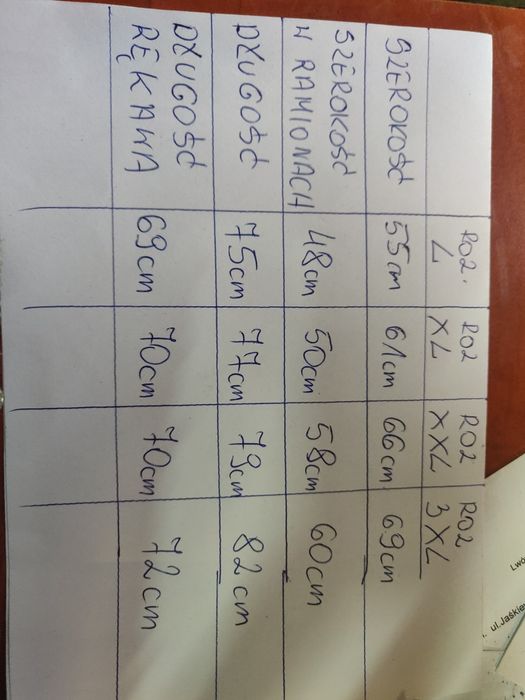 ROZ. L ROZ XL ROZ XXL ROZ 3XL
SZEROKOŚĆ 55cm 61cm 66cm 69cm
SZEROKOŚĆ
W RAMIONACH 48cm 50cm 58cm 60cm
DŁUGOŚĆ 75cm 77cm 79cm 82cm
DŁUGOŚĆ
RĘKAWA 69cm 70cm 70cm 72cm
Lwó
ul.Jaśkie